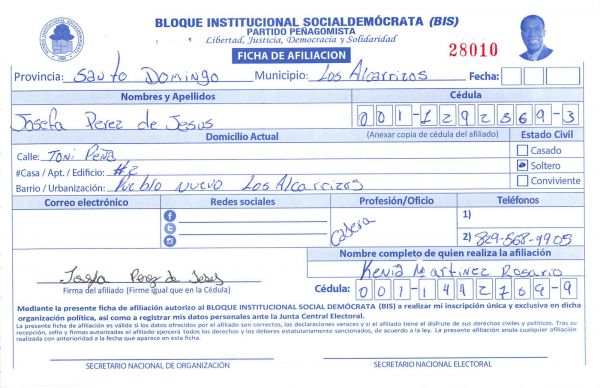 BLOQUE INSTITUCIONAL SOCIALDEMÓCRATA (BIS)
PARTIDO PEÑAGOMISTA
Libertad, Justicia, Democracia y Solidaridad
FICHA DE AFILIACION
28010
Provincia: Santo Domingo Municipio: Los Alcarrizos Fecha:
Nombres y Apellidos Cédula
Josefa Perez de Jesus 001-1292369-3
Domicilio Actual (Anexar copia de cédula del afiliado) Estado Civil
Calle: Toni Peña Casado
#Casa / Apt. / Edificio: #2 Soltero
Barrio / Urbanización: Pueblo Nuevo Los Alcarrizos Conviviente
Correo electrónico Redes sociales Profesión/Oficio Teléfonos
Casera 1)
2) 829-568-9905
Nombre completo de quien realiza la afiliación
Josefa Perez de Jesus Kenia Martinez Rosario
Firma del afiliado (Firme igual que en la Cédula) Cédula: 001-1492769-9
Mediante la presente ficha de afiliación autorizo al BLOQUE INSTITUCIONAL SOCIAL DEMÓCRATA (BIS) a realizar mi inscripción única y exclusiva en dicha
organización política, así como a registrar mis datos personales ante la Junta Central Electoral.
La presente ficha de afiliación es válida si los datos ofrecidos por el afiliado son correctos, las declaraciones veraces y si el afiliado tiene el disfrute de sus derechos civiles y políticos. Tras su
recepción, sello y firmas autorizadas el afiliado ejercerá todos los derechos y los deberes estatutariamente sancionados, de acuerdo a la ley. La presente afiliación anula cualquier afiliación
realizada con anterioridad a la fecha que aparece en esta ficha.
SECRETARIO NACIONAL DE ORGANIZACIÓN SECRETARIO NACIONAL ELECTORAL